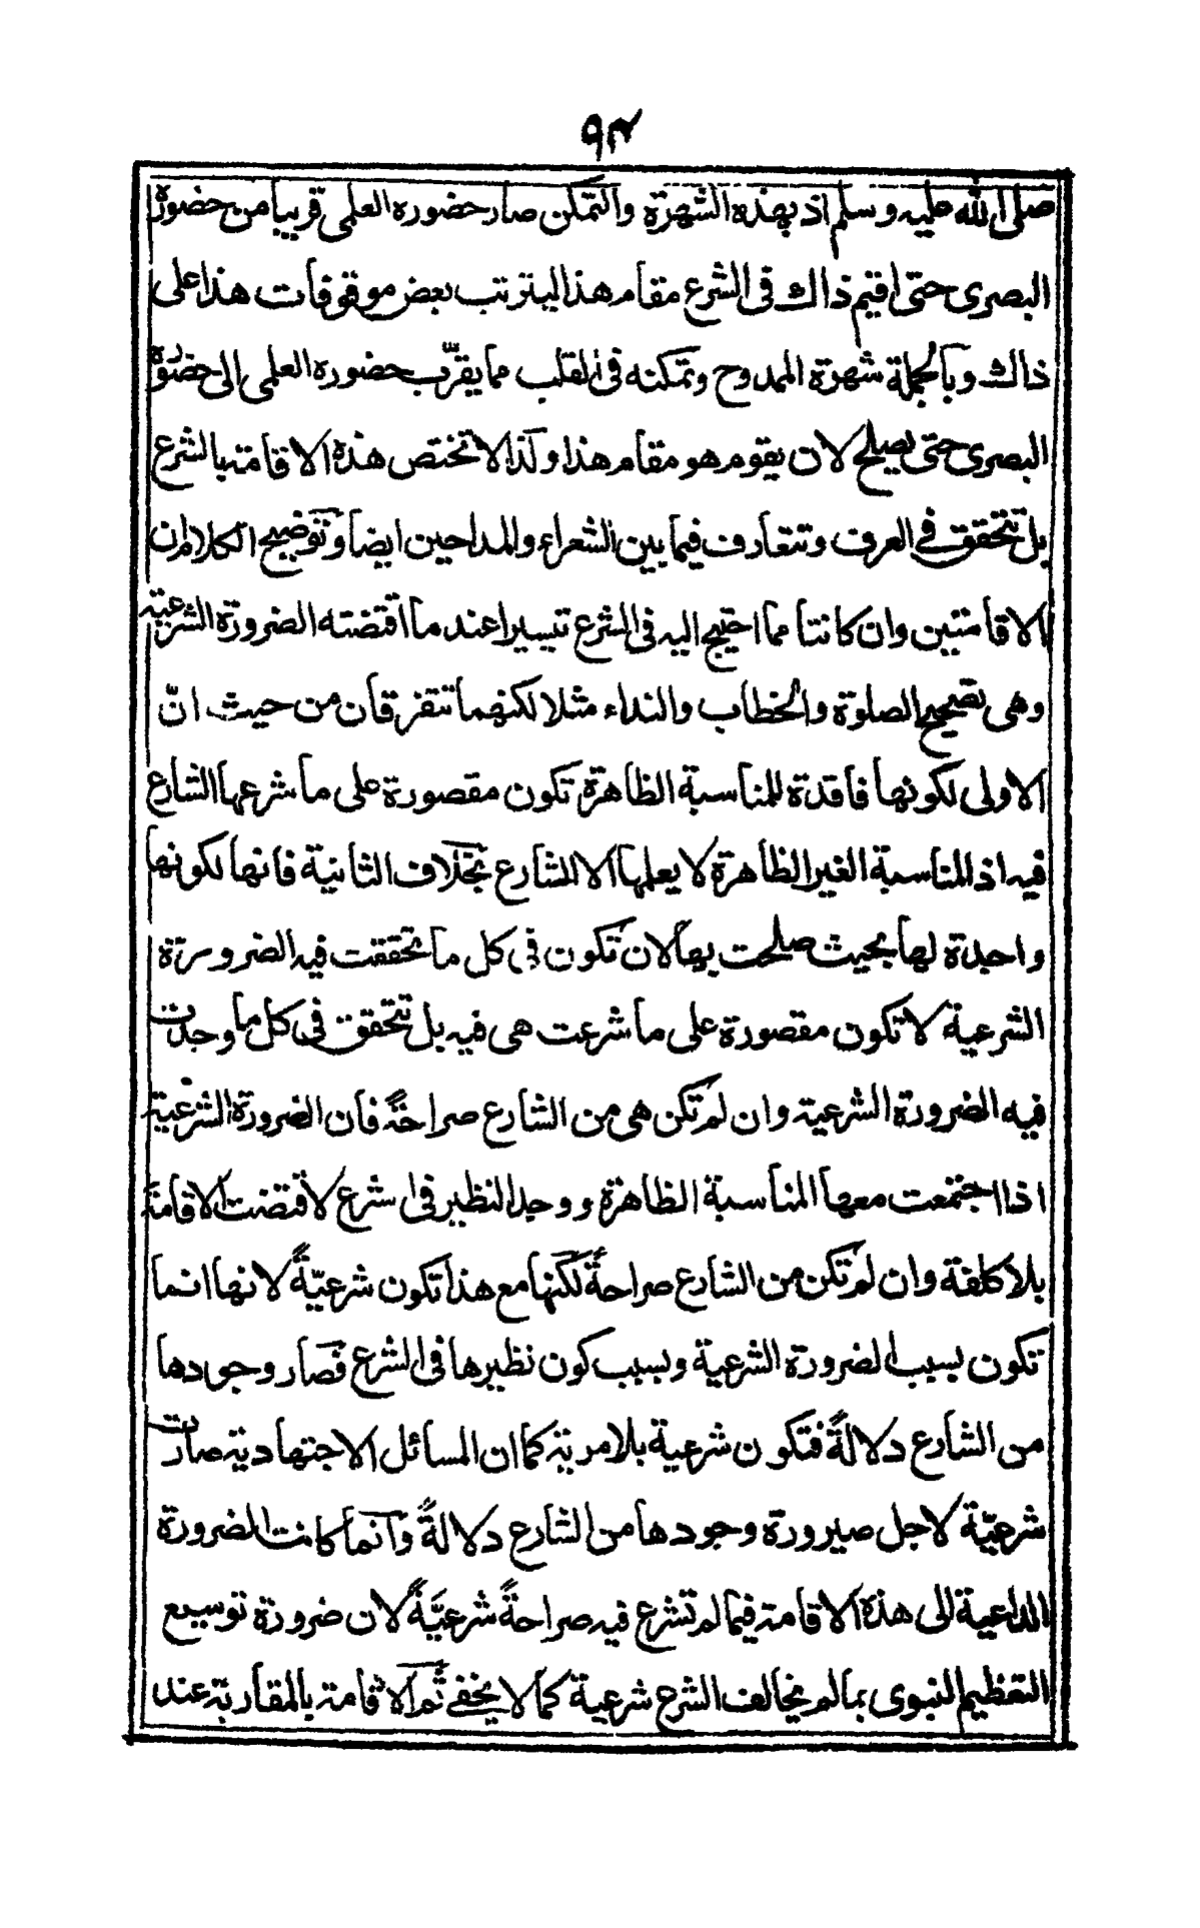 ٩٣
صلى الله عليه وسلم اذ بهذه الشهرة والتمكن صار حضوره العلمى قريبا من حضوره
البصرى حتى اقيم ذالك فى الشرع مقام هذا ليترتب بعض موقوفات هذا على
ذالك وبالجملة شهرة الممدوح وتمكنه فى القلب مما يقرّب حضوره العلمى الى حضوره
البصرى حتى يصلح لان يقوم هو مقام هذا وكذا لا تختص هذه الاقامة بالشرع
بل تتحقق فى العرف وتتعارف فيما بين الشعراء والمداحين ايضا وتوضيح الكلام ان
الاقامتين وان كانتا مما احتيج اليه فى الشرع تيسيرا عند ما اقتضته الضرورة الشرعية
وهى تصحيح الصلوة والخطاب والنداء مثلا لكنهما تتفرقان من حيث انّ
الاولى لكونها فاقدة للمناسبة الظاهرة تكون مقصورة على ما شرعها الشارع
فيه اذ المناسبة الغير الظاهرة لا يعلمها الا الشارع بخلاف الثانية فانها لكونها
واجدة لها بحيث صلحت بها لان تكون فى كل ما تحققت فيه الضرورة
الشرعية لا تكون مقصورة على ما شرعت هى فيه بل تتحقق فى كل ما وجدت
فيه الضرورة الشرعية وان لم تكن هى من الشارع صراحةً فان الضرورة الشرعية
اذا اجتمعت معها المناسبة الظاهرة ووجد النظير فى الشرع لاقتضت الاقامة
بلا كلفة وان لم تكن من الشارع صراحةً لكنها مع هذا تكون شرعيّةً لانها انما
تكون بسبب الضرورة الشرعية وبسبب كون نظيرها فى الشرع فصار وجودها
من الشارع دلالةً فتكون شرعية بلا مرية كما ان المسائل الاجتهادية صارت
شرعيّة لاجل صيرورة وجودها من الشارع دلالةً وانما كانت الضرورة
الداعية الى هذه الاقامة فيما لم تشرع فيه صراحةً شرعيّةً لان ضرورة توسيع
التعظيم النبوى بما لم يخالف الشرح شرعية كما لا يخفى ثم الاقامة بالمقاربة عند